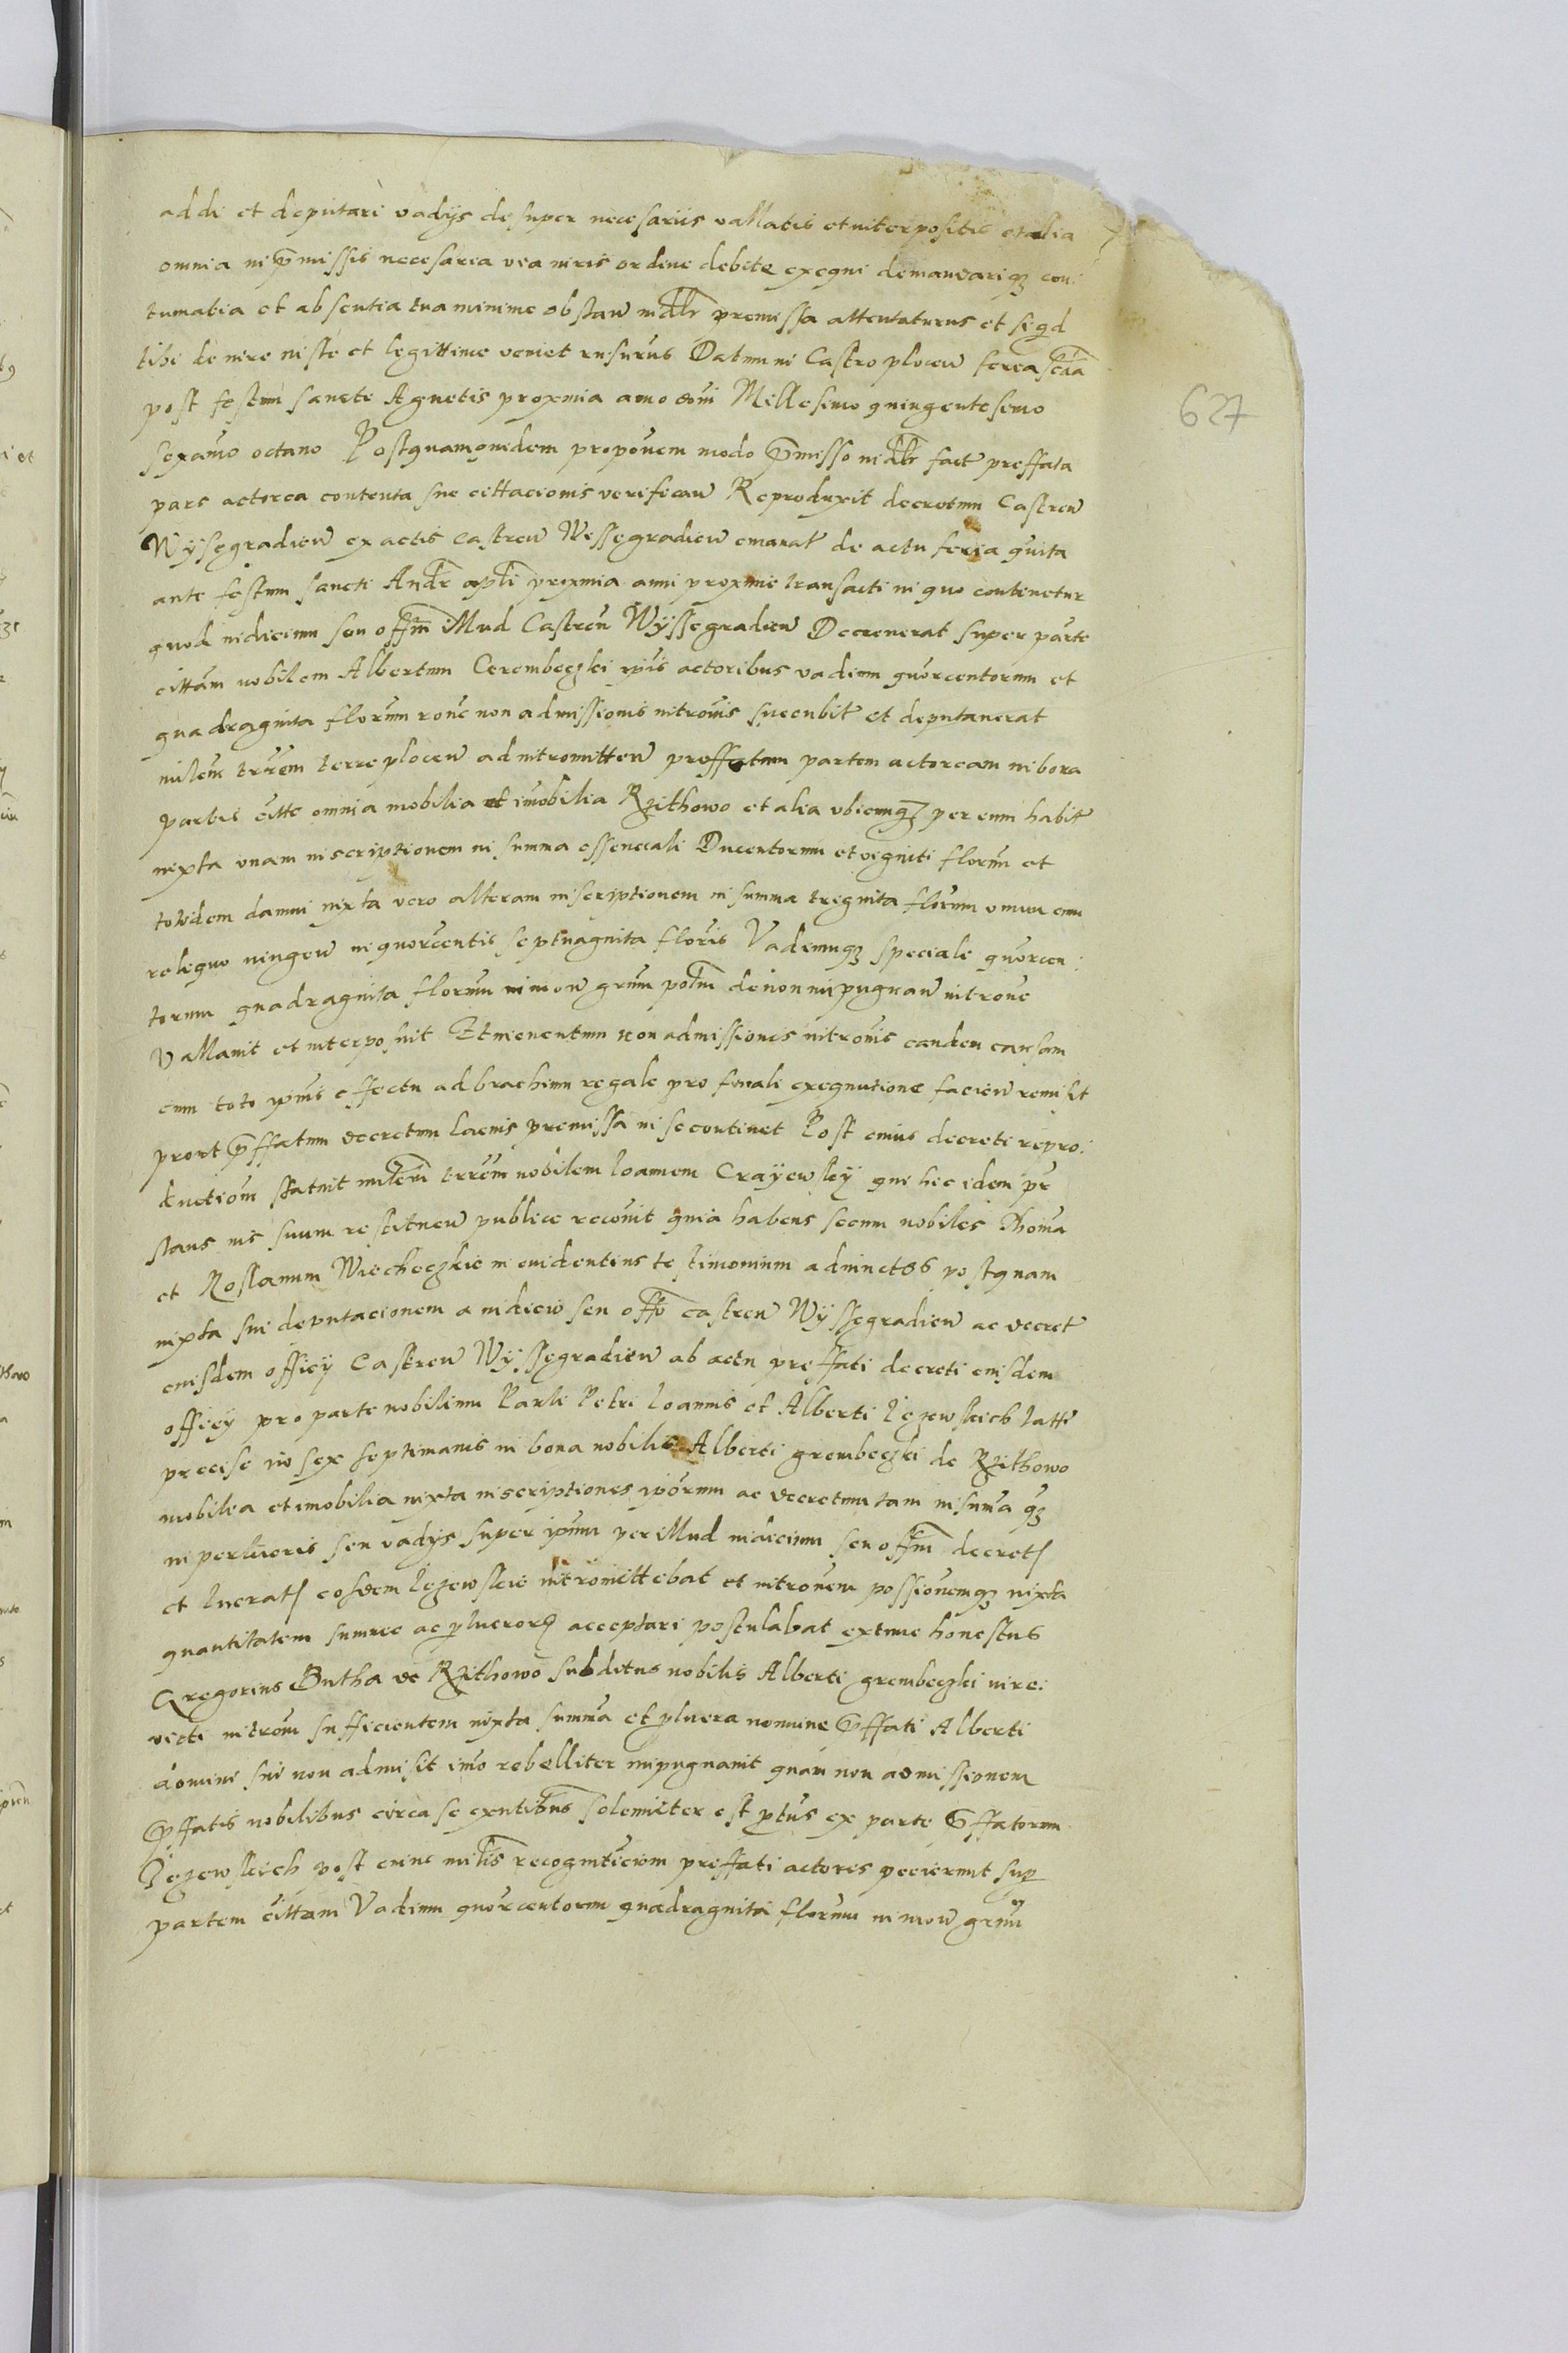 addi et deputari vadys desuper necesariis vallatis et interpositis et alia
omnia in p̄missis necesaria via iuris ordine debite exequi demandariq3 con:
tumatia et absentia tua minime obstan̄ iudlr̄ premissa attentaturus et seqd
tibi de iure iuste et legittime veniet rnsurus Datum in Castro plocen̄ feria scda
post festum sancte Agnetis proxima anno domi Millesimo quingentesimo
sexamo octavo Postquamquidem proponem modo p̄misso iudlr̄ fact̄ preffata
pars actorea contenta sue cittacionis verifican̄ Reproduxit decretum Castren̄
Wysegradien̄ ex actis castren̄ Wyssegradien̄ emanat̄ de actu feria quita
ante festum sancti Andr̄ apli proxima anni proxime transacti in quo continetur
quod iudicium seu offm̄ illud Castren̄ Wyssegradien̄ Decreuerat super parte
cittam nobilem Albertum Cerembeczki ipis actoribus vadium quorcentorum et
quadraginta florum ronē non admissionis introinis succubit̄ et deputauerat
mileni trrem terre plocen̄ ad intromitten̄ preffatam partem actoream in bona
partis citte omnia mobilia et imobilia Rzithowo et alia vbicumq3 per eum habit̄
iuxta vnam inscriptionem in summa essenciali Ducentorum et viginti florum et
totidem damni iuxta vero alteram inscriptionem in summa triginta florum omni cum
religuo iungen̄ in quorcentis septuaginta floris Vadiumq3 speciale quorcen:
torum quadraginta florum in mon̄ grum potm̄ de non inpugnan̄ introne
Vallauit et interposuit Et in euentum non admissionis introinis eandem causam
cum toto ipius effectu ad brachium regale pro finali exequutione facien̄ remisit
prout p̄ffatum decretum lacius premissa in se continet Post cuius decreti repro:
ductiom statuit milem̄ trrem nobilem Ioannem Crayewsky qui hic idem pr̄
stans ius suum restituen̄ publice reconit quia habens secum nobiles Thoma
et Roslanum Wiecheczkie in euidentius testimonium adiunctos postquam
iuxta sui deputacionem a iudicio seu offo castren̄ Wyssegradien̄ ac decret̄
eiusdem officy Castren̄ Wyssegradien̄ ab actu preffati decreti eiusdem
officy pro parte nobilium Pauli Petri Ioannis et Alberti Iezewskich latti
precise in sex septimanis in bona nobilis Alberti grembeczki de Rzithowo
mobilia et imobilia iuxta inscriptiones iporum ac decretum tam in suma q3
in perlucris seu vadys super ipum per illud iudicium seu offm̄ decret
et lucrat eosdem Iezewskie intromittebat et intronem possionemq3 iuxta
quantitatem summe ac plucror acceptari postulabat extunc honestus
Gregorius Butha de Rzithowo subditus nobilis Alberti grembeczki inre:
victi introm sufficientem iuxta summa et plucra nomine p̄ffati Alberti
domini sui non admisit imo rebelliter inpugnauit quam non admissionem
p̄ffatis nobilibus circa se exntibus solemniter est ptus ex parte p̄ffatorum
Iezewskich post cuius milis recognitciom preffati actores pecierunt sup
partem cittam Vadium quorcentorum quadraginta florum in mon̄ grum
627